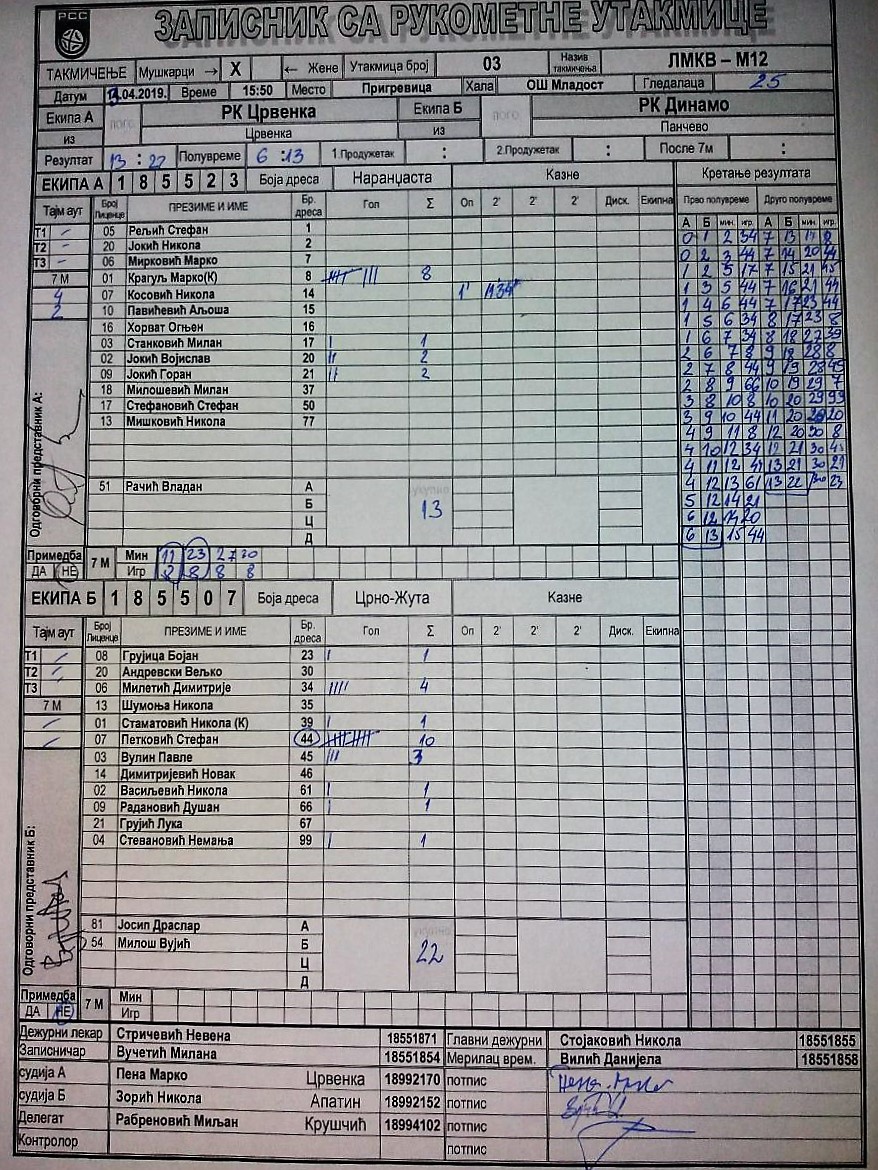 РСС
ЗАПИСНИК СА РУКОМЕТНЕ УТАКМИЦЕ
ТАКМИЧЕЊЕ Мушкарци → X ← Жене Утакмица број 03 Назив такмичења ЛМКВ – М12
Датум .04.2019. Време 15:50 Место Пригревица Хала ОШ Младост Гледалаца 25
Екипа А РК Црвенка ЕКИПА Б РК Динамо
из Црвенка из Панчево
Резултат 13 : 22 Полувреме 6 :13 1.Продужетак : 2.Продужетак : После 7м :
ЕКИПА А 1 8 5 5 2 3 Боја дреса Наранџаста Казне Кретање резултата
Тајм аут Број Лиценце ПРЕЗИМЕ И ИМЕ Бр. дреса Гол Σ Оп 2' 2' 2' Диск. Екипна Прво полувреме Друго полувреме
А Б мин. игр. А Б мин. игр.
Т1 – 05 Рељић Стефан 1
Т2 – 20 Јокић Никола 2
Т3 – 06 Мирковић Марко 7
7 М 01 Крагуљ Марко(К) 8 8
4 07 Косовић Никола 14 1'
2 10 Павићевић Аљоша 15
16 Хорват Огњен 16
03 Станковић Милан 17 1
02 Јокић Војислав 20 2
09 Јокић Горан 21 2
18 Милошевић Милан 37
17 Стефановић Стефан 50
13 Мишковић Никола 77
51 Рачић Владан А
Б
Ц
Д
укупно
13
Одговорни представник А:
0 1 2 34 7 13 17 8
0 2 3 44 7 14 20 44
1 2 5 17 7 15 21 45
1 3 5 44 7 16 21 44
1 4 6 44 7 17 23 44
1 5 6 34 8 17 23 8
1 6 7 34 8 18 27 39
2 6 7 8 9 18 28 8
2 7 8 44 9 19 28 45
2 8 9 66 10 19 29 7
3 8 10 8 10 20 29 99
3 9 10 44 11 20 20
4 9 11 8 12 20 30 8
4 10 12 34 12 21 30 45
4 11 12 45 13 21 30 21
4 12 13 61 13 22 30 23
5 12 14 21
6 12 14 20
6 13 15 44
Примедба 7 М Мин 11 23 27 30
ДА НЕ Игр 8 8 8 8
ЕКИПА Б 1 8 5 5 0 7 Боја дреса Црно-Жута Казне
Тајм аут Број Лиценце ПРЕЗИМЕ И ИМЕ Бр. дреса Гол Σ Оп 2' 2' 2' Диск. Екипна
Т1 08 Грујица Бојан 23 1
Т2 20 Андревски Вељко 30
Т3 06 Милетић Димитрије 34 4
7 М 13 Шумоња Никола 35
01 Стаматовић Никола (К) 39 1
07 Петковић Стефан 44 10
03 Вулин Павле 45 3
14 Димитријевић Новак 46
02 Васиљевић Никола 61 1
09 Радановић Душан 66 1
21 Грујић Лука 67
04 Стевановић Немања 99 1
81 Јосип Драслар А
54 Милош Вујић Б
Ц
Д
укупно
22
Одговорни представник Б:
Примедба 7 М Мин
ДА НЕ Игр
Дежурни лекар Стричевић Невена 18551871 Главни дежурни Стојаковић Никола 18551855
Записничар Вучетић Милана 18551854 Мерилац врем. Вилић Данијела 18551858
судија А Пена Марко Црвенка 18992170 потпис
судија Б Зорић Никола Апатин 18992152 потпис
Делегат Рабреновић Миљан Крушчић 18994102 потпис
Контролор потпис